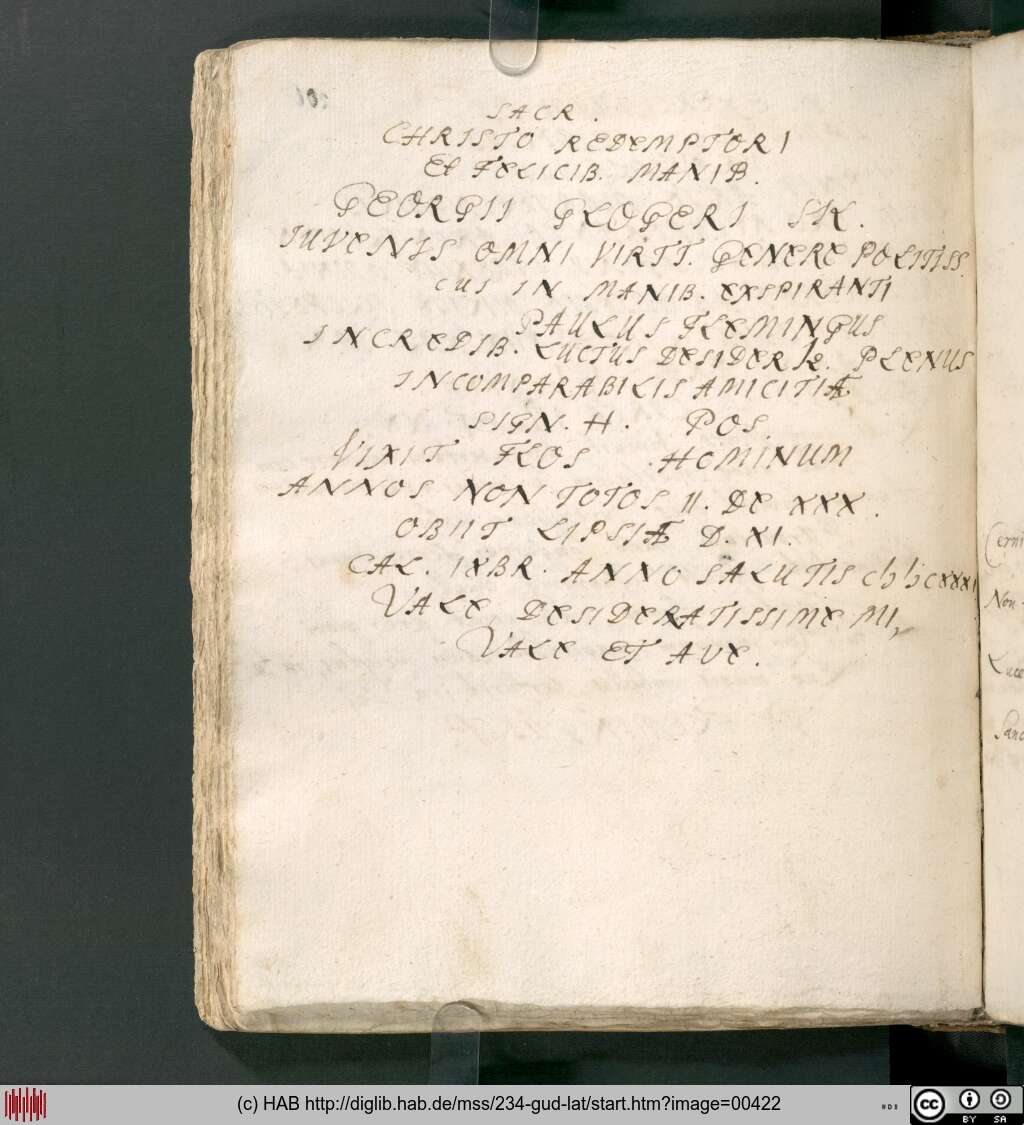 SACR.
CHRISTO REDEMPTORI
Et FELICIB. MANIB.
GEORGII GLOGERI SIL.
IUVENIS OMNI VIRTT. GENERE POLITISS.
CUI IN MANIB. EXSPIRANTI
PAULUS FLEMINGUS
INCREDIB. LUCTUS DESIDER PLENUS
INCOMPARABILIS AMICITIÆ
SIGN. H. POS.
VIXIT FLOS HOMINUM
ANNOS NON TOTOS II. DE XXX.
OBIIT LIPSIÆ D. XI.
CAL. IXBR. ANNO SALUTIS
VALE, DESIDERATISSIME MI,
VALE ET AVE.
Cerni
Non
Luce
Sanc
(c) HAB http://diglib.hab.de/mss/234-gud-lat/start.htm?image=00422
cc BY SA